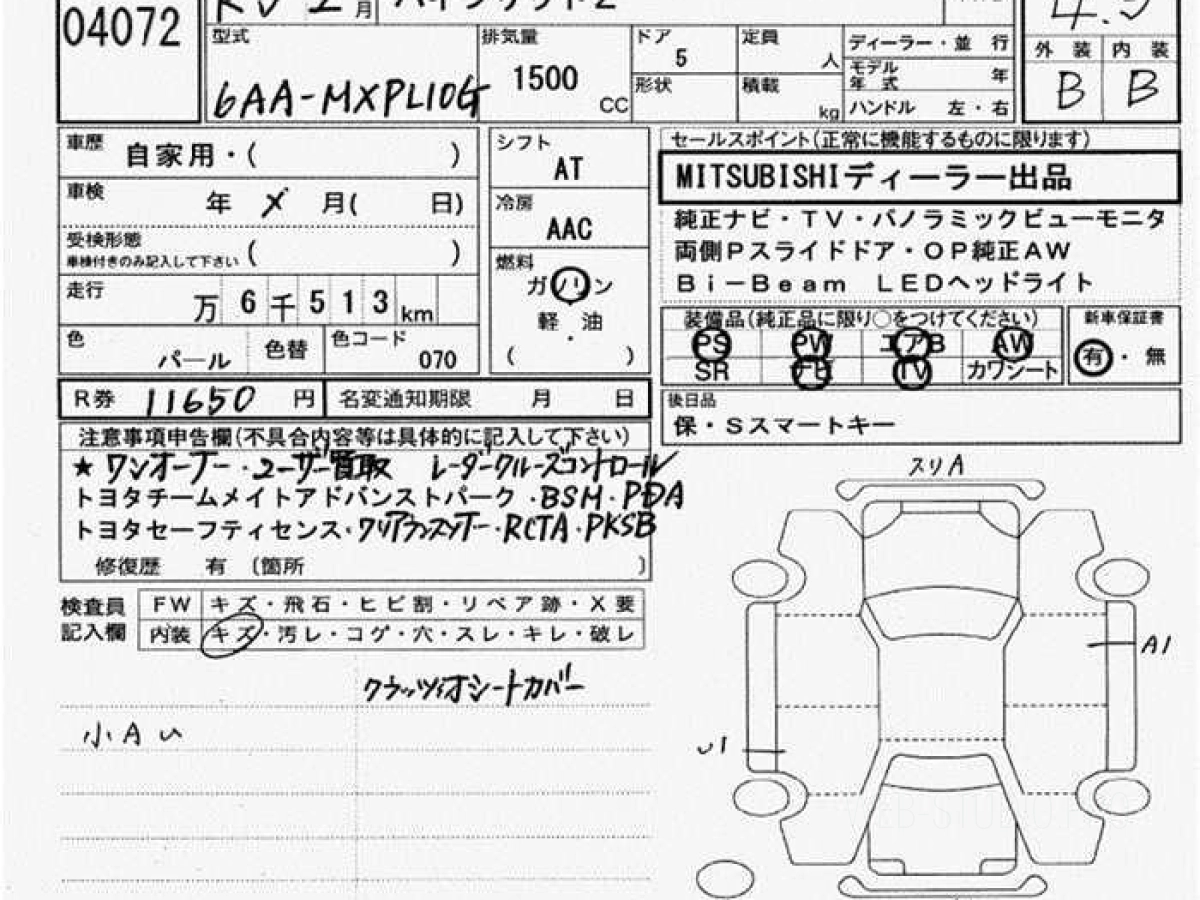 04072
月 ハイブリッドZ
型式
6AA-MXPL10G
排気量
1500
CC
ドア
5
形状
定員
人
積載
kg
ディーラー・並 行
モデル
年 式 年
ハンドル 左・右
外 装 内 装
B B
車歴
自家用・( )
車検
年 メ 月( 日)
受検形態
車検付きのみ記入して下さい ( )
走行
万 6 千 5 1 3 km
色
パール
色替
色コード
070
シフト
AT
冷房
AAC
燃料
ガソリン
軽・油
( )
R券 11650 円
名変通知期限 月 日
セールスポイント(正常に機能するものに限ります)
MITSUBISHIディーラー出品
純正ナビ・TV・パノラミックビューモニタ
両側Pスライドドア・OP純正AW
Bi-Beam LEDヘッドライト
装備品(純正品に限り○をつけてください)
PS PW エアB AW
SR ナビ TV カワシート
新車保証書
有・無
後日品
保・Sスマートキー
注意事項申告欄(不具合内容等は具体的に記入して下さい)
★ワンオーナー・ユーザー買取 レーダークルーズコントロール
トヨタチームメイトアドバンストパーク・BSM・PDA
トヨタセーフティセンス・クリアランスソナー・RCTA・PKSB
修復歴 有 〔箇所 〕
検査員
記入欄
FW キズ・飛石・ヒビ割・リペア跡・X要
内装 キズ・汚レ・コゲ・穴・スレ・キレ・破レ
クラッツィオシートカバー
小A U
スリA
A1
U1